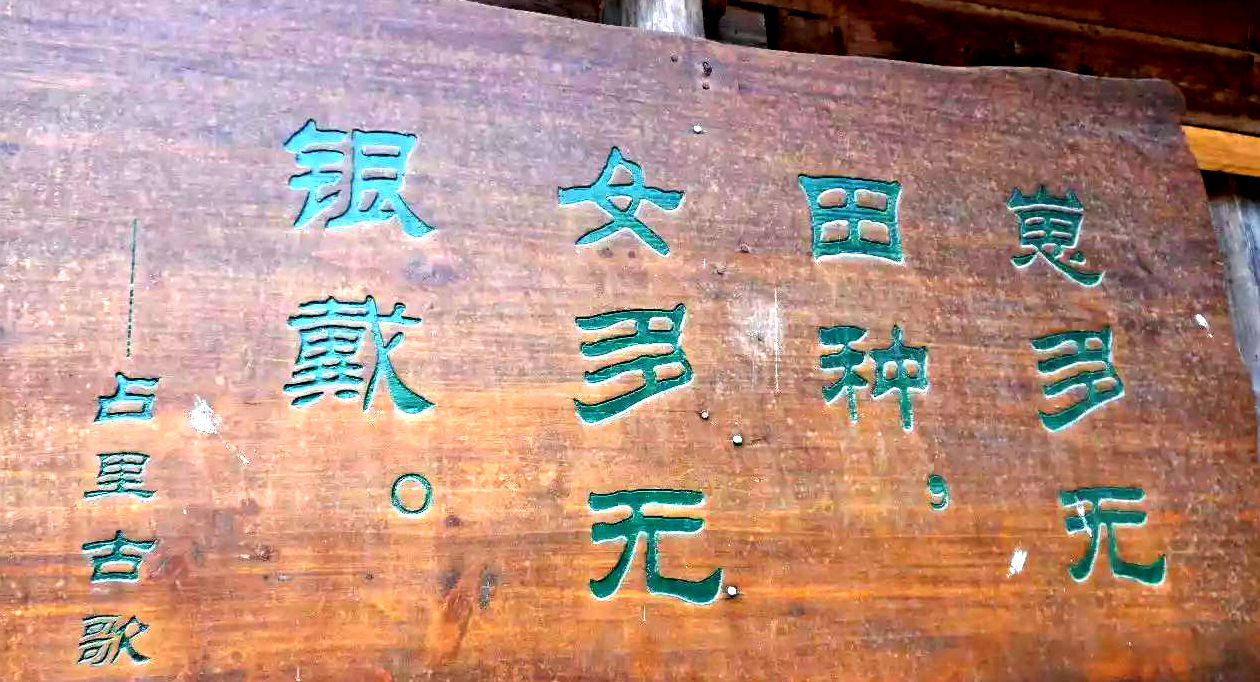 崽多无
田种，
女多无
银戴。
——占里古歌